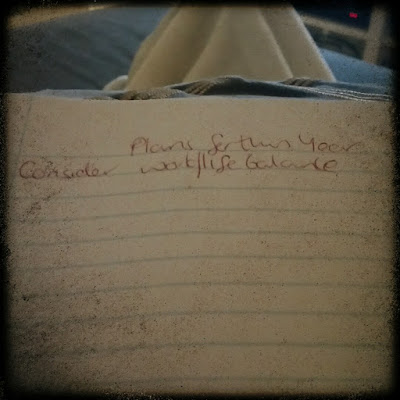 Plans for this Year
Consider work/life balance